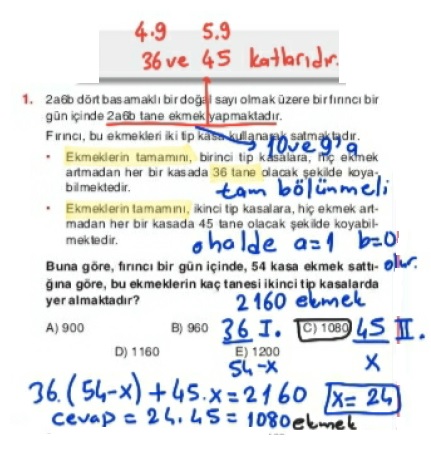 4.9 5.9
36 ve 45 katlarıdır.
1. 2a6b dört basamaklı bir doğal sayı olmak üzere bir fırıncı bir
gün içinde 2a6b tane ekmek yapmaktadır.
Fırıncı, bu ekmekleri iki tip kasa kullanarak satmaktadır.
10 ve 9'a
• Ekmeklerin tamamını, birinci tip kasalara, hiç ekmek
artmadan her bir kasada 36 tane olacak şekilde koya-
bilmektedir.
tam bölünmeli
• Ekmeklerin tamamını, ikinci tip kasalara, hiç ekmek art-
madan her bir kasada 45 tane olacak şekilde koyabil-
mektedir.
o halde a=1 b=0
olur.
Buna göre, fırıncı bir gün içinde, 54 kasa ekmek sattı-
ğına göre, bu ekmeklerin kaç tanesi ikinci tip kasalarda
yer almaktadır?
2160 ekmek
A) 900 B) 960 36 I. C) 1080 45 II.
D) 1160 E) 1200
54-x x
36.(54-x) + 45.x = 2160 x = 24
cevap = 24.45 = 1080 ekmek